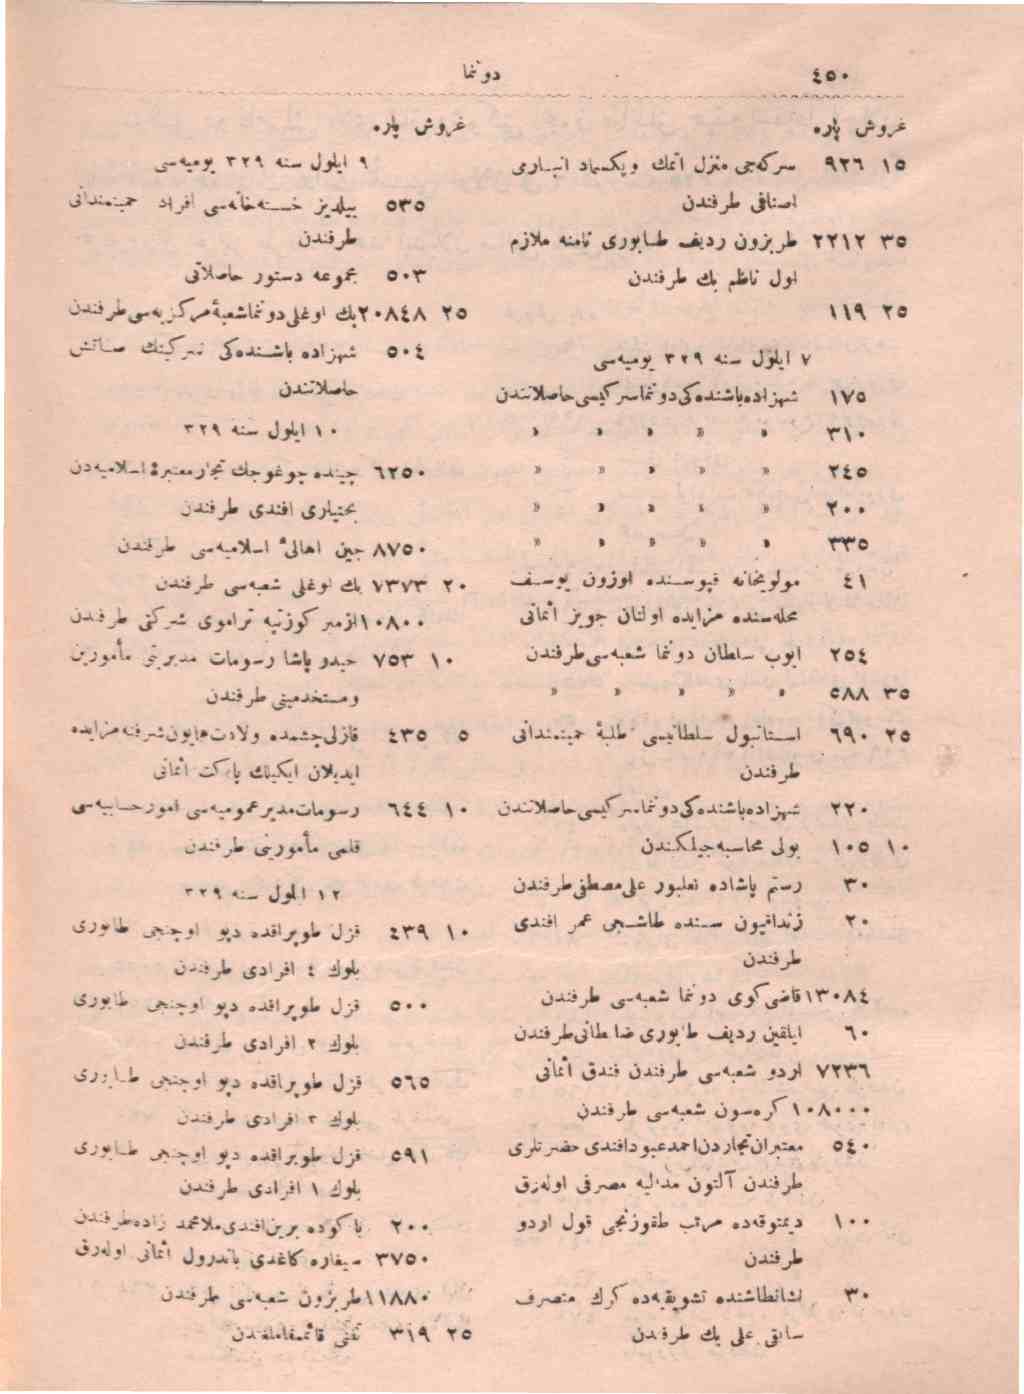 ٤٥٠
دوننما
غروش پاره
١٥ ٩٢٦ سركه‌جی منزل اتمك وپكسماد انباری
اصنافی طرفندن
٣٥ ٢٢١٢ طربزون ردیف طابوری ثامنه ملازم
اول ناظم بك طرفندن
٢٥ ١١٩
٧ ایلول سنه ٣٢٩ یومیه‌سی
١٧٥ شهزاده‌باشنده‌كی دوننماسركیسی حاصلاتندن
٣١٠ » » » » »
٢٤٥ » » » » »
٢٠٠ » » » » »
٣٣٥ » » » » »
٤١ مولویخانه قپوسنده اوزون یوسف
محله‌سنده مزایده اولنان جویز اثمانی
٢٥٤ ایوب سلطان دوننما شعبه‌سی طرفندن
٣٥ ٥٨٨ » » » » »
٢٥ ٦٩٠ استانبول سلطانیسی طلبهٔ حمیتمندانی
طرفندن
٢٢٠ شهزاده‌باشنده‌كی دوننماسركیسی حاصلاتندن
١٠ ١٠٥ بولی محاسبه‌جیلكندن
٣٠ رستم پاشاده نعلبور علی مصطفی طرفندن
٢٠ سنده طاشجی عمر افندی
طرفندن
١٣٠٨٤ قاضی كوی دوننما شعبه‌سی طرفندن
٦٠ ایلغین ردیف طابوری ضابطانی طرفندن
٧٢٣٦ اردو شعبه‌سی طرفندن فندق اثمانی
١٠٨٠٠٠ كره‌سون شعبه‌سی طرفندن
٥٤٠ معتبران تجاردن احمد عبود افندی حضرتلری
طرفندن آلتون مدالیه مصرفی اوله‌رق
١٠٠ دیمتوقه‌ده مرتب طقوزنجی قول اردو
طرفندن
٣٠ نشانطاشنده تشویقیه‌ده كرك متصرف
سابقی علی بك طرفندن
غروش پاره
٩ ایلول سنه ٣٢٩ یومیه‌سی
٥٣٥ ییلدیز خسته‌خانه‌سی افراد حمیتمندانی
طرفندن
٥٠٣ مجموعه دستور حاصلاتی
٢٥ ٢٠٨٤٨ بك اوغلی دوننما شعبهٔ مركزیه‌سی طرفندن
٥٠٤ شهزاده باشنده‌كی سركینك صاتش
حاصلاتندن
١٠ ایلول سنه ٣٢٩
٦٢٥٠ چینده چوغوجك تجار معتبرهٔ اسلامیه‌دن
بختیاری افندی طرفندن
٨٧٥٠ چین اهالیٔ اسلامیه‌سی طرفندن
٢٠ ٧٣٧٣ بك اوغلی شعبه‌سی طرفندن
١٠٨٠٠ ازمیر كوزتپه تراموی شركتی طرفندن
١٠ ٧٥٣ حیدر پاشا رسومات مدیریتی مأمورین
ومستخدمینی طرفندن
٥ ٤٣٥ قازلی‌چشمه‌ده ولادت همایون شرفنه مزایده
ایدیلان ایكیلك پاكت اثمانی
١٠ ٦٤٤ رسومات مدیر عمومیه‌سی امور حسابیه‌سی
قلمی مأمورینی طرفندن
١٢ ایلول سنه ٣٢٩
١٠ ٤٣٩ قزل طوپراقده دپو اوچنجی طابوری
بلوك ٤ افرادی طرفندن
٥٠٠ قزل طوپراقده دپو اوچنجی طابوری
بلوك ٢ افرادی طرفندن
٥٦٥ قزل طوپراقده دپو اوچنجی طابوری
بلوك ٣ افرادی طرفندن
٥٩١ قزل طوپراقده دپو اوچنجی طابوری
بلوك ١ افرادی طرفندن
٢٠٠ باكوده افندی ملامحمد زاده طرفندن
٣٧٥٠ سیغاره كاغدی باندرول اثمانی اوله‌رق
١١٨٨٠ طربزون شعبه‌سی طرفندن
٢٥ ٣١٩ تفنی قائممقاملغندن